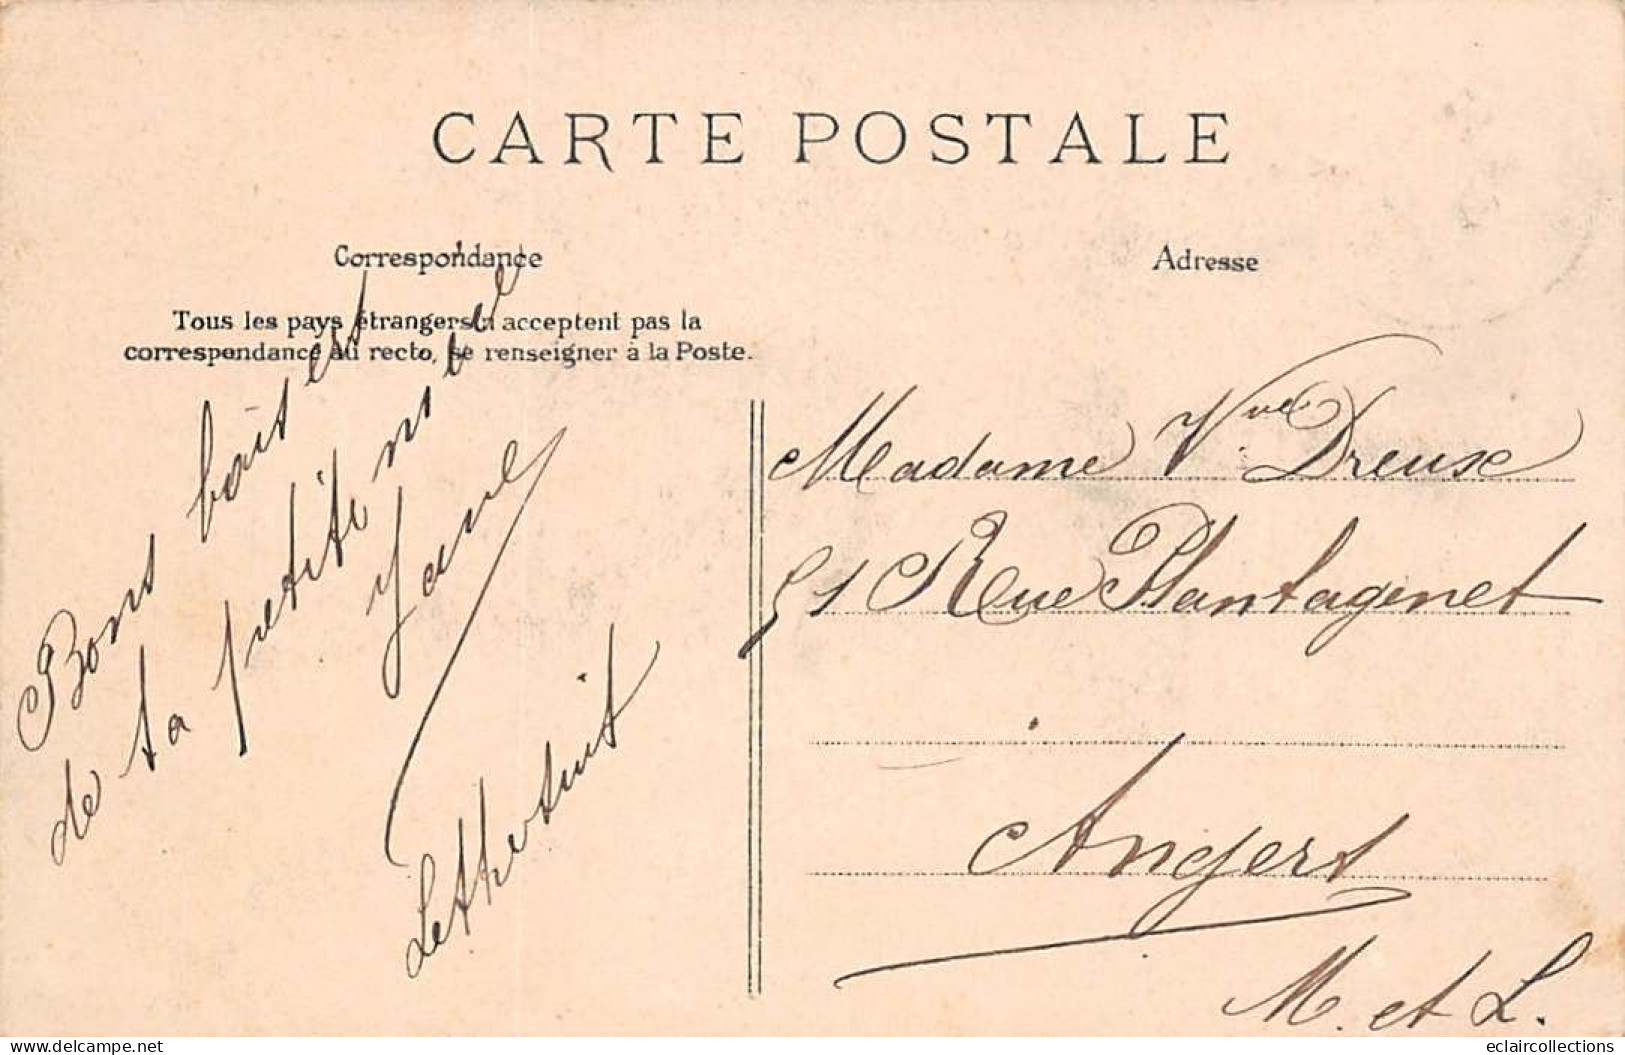 CARTE POSTALE
Correspondance
Tous les pays étrangers n'acceptent pas la
correspondance au recto, se renseigner à la Poste.
Bons baisers
de ta petite nièce
Jane
Lettre suit
Adresse
Madame Vve Dreux
51 Rue Plantagenet
Angers
M. et L.
www.delcampe.net
eclaircollections